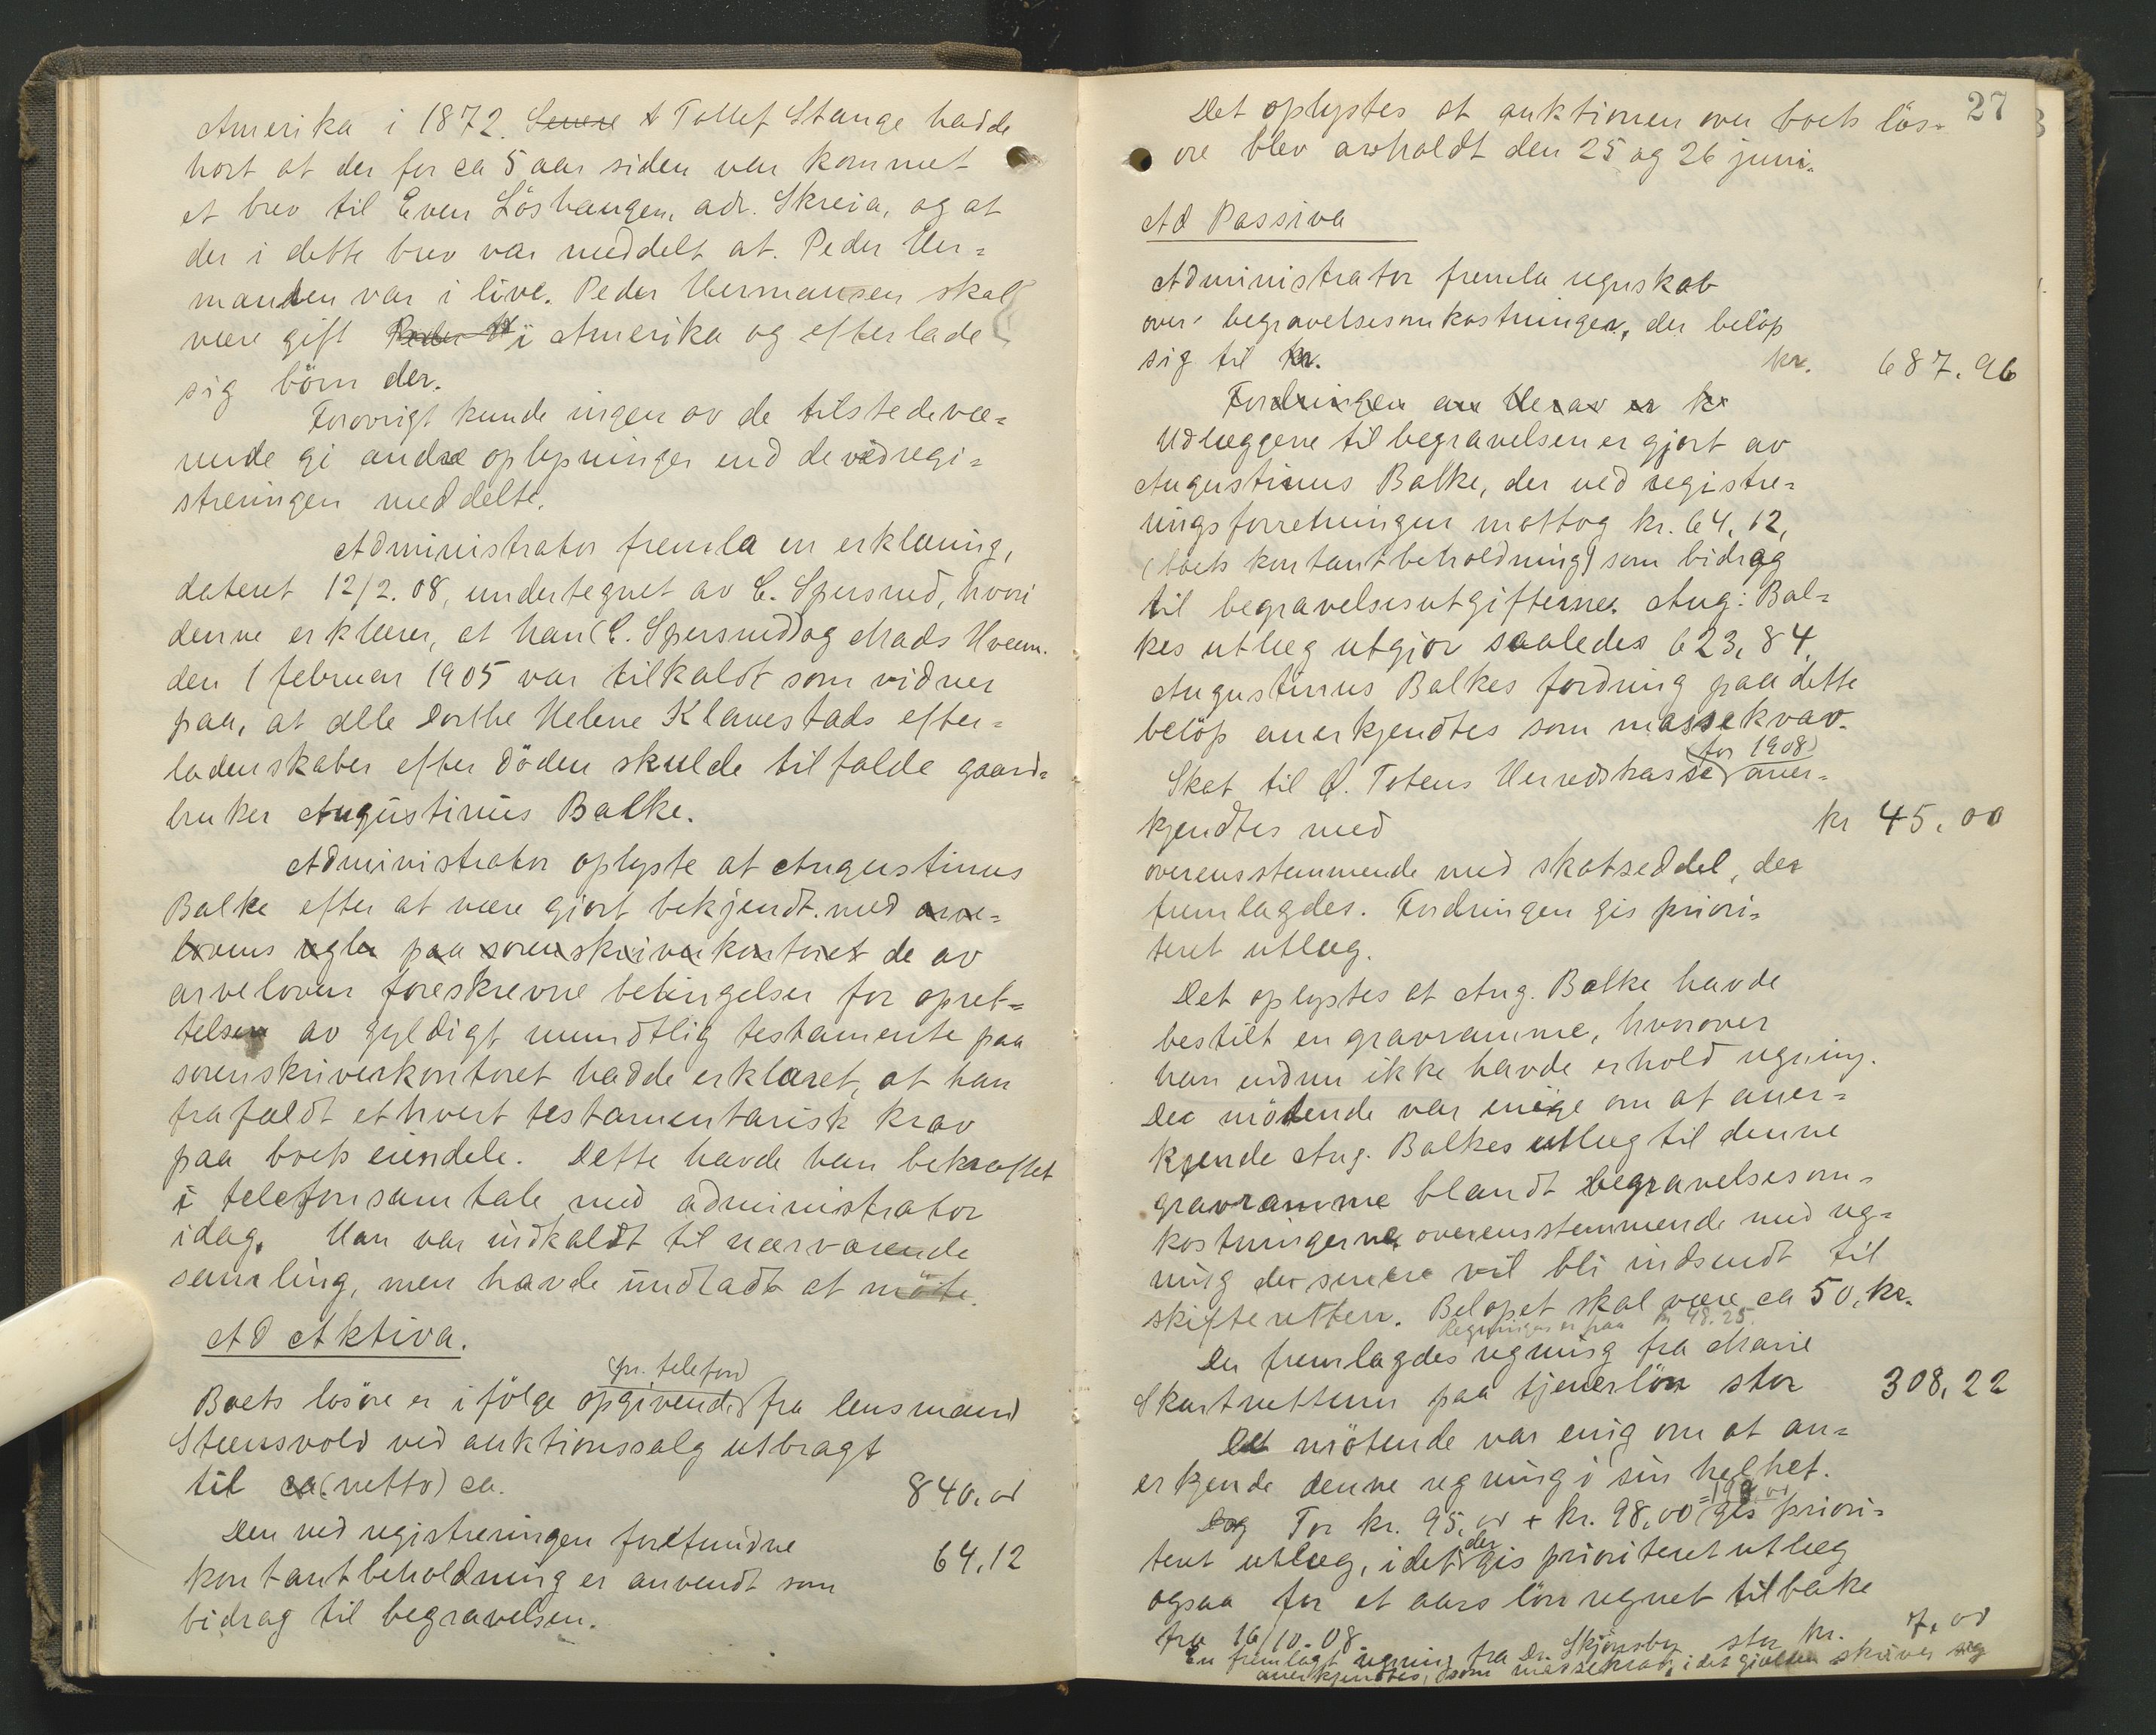 Amerika i 1872. Senere A Tollef Stange hadde
hørt at der for ca 5 aar siden var kommet
et brev til Even Löshaugen, adr. Skreia, og at
der i dette brev var meddelt at Peder Her=
mansen var i live. Peder Hermansen skal
være gift Peder H i Amerika og efterlade
sig börn der.
Forøvrigt kunde ingen av de tilstedevæ=
rende gi andre oplysninger end de ved regi=
streringen meddelte.
Administrator fremla en erklæring,
dateret 12/2. 08, undertegnet av C. Spersrud, hvori
denne erklærer, at han (C. Spersrud) og Mads Hveem.
den 1 februar 1905 var tilkaldt som vidner
paa, at alle Dorthe Helene Klavestads efter=
ladenskaber efter döden skulde tilfalde gaard=
bruker Augustinus Balke.
Administrator oplyste at Augustinus
Balke efter at være gjort bekjendt med arve=
lovens regler paa sorenskriverkontoret de av
arveloven foreskrevne betingelser for opret=
telsen av gyldigt mundtlig testamente paa
sorenskriverkontoret hadde erklæret, at han
frafaldt ethvert testamentarisk krav
paa boets eiendele. Dette havde han bekræftet
i telefonsamtale med administrator
idag. Han var indkaldt til nærværende
samling, men havde undladt at möte.
Ad Aktiva.
(pr. telefon)
Boets lösöre er i fölge opgivende fra lensmand
Steensvold ved auktionssalg utbragt
til ca (netto) ca. 840,00
Den ved registreringen forefundne
kontantbeholdning er anvendt som 64,12
bidrag til begravelsen.
27
Det oplystes at auktionen over boets lös=
øre blev avholdt den 25 og 26 juni.
Ad Passiva
Administrator fremla regnskab
over begravelsesomkostningen, der belöp
sig til kr. kr. 687.96
Fordringen av Derav er kr
Udlæggene til begravelsen er gjort av
Augustinus Balke, der ved registre=
ringsforretningen mottog kr. 64,12,
(boets kontantbeholdning) som bidrag
til begravelsesutgifterne. Aug: Bal=
kes utlæg utgjør saaledes 623,84.
Augustinus Balkes fordring paa dette
belöp anerkjendtes som massekrav.
(for 1908)
Skat til Ø. Totens Herredskasse aner=
kjendtes med kr 45,00
overensstemmende med skatseddel, der
fremlagdes. Fordringen gis priori=
teret utlæg.
Det oplystes at Aug. Balke havde
bestilt en gravramme, hvorover
han endnu ikke havde erhold regning.
De mötende var enige om at aner=
kjende Aug. Balkes utlæg til denne
gravramme blandt begravelsesom=
kostningerne overensstemmende med reg=
ning der senere vil bli indsendt til
skifteretten. Belöpet skal være ca 50, kr.
Regningen er paa kr 48.25.
Der fremlagdes regning fra Marie
paa tjenerlön stor 308,22
De mötende var enig om at an=
erkjende denne regning i sin helhet.
Dog For kr. 95,00 + kr. 98,00 = 193,00 gis priori=
teret utlæg, idet der gis prioriteret utlæg
ogsaa for et aars lön regnet tilbake
fra 16/10. 08.
En fremlagt regning fra Dr. Skjønsby stor kr. 7,00
anerkjendtes, som massekrav, idet gjælden skriver sig